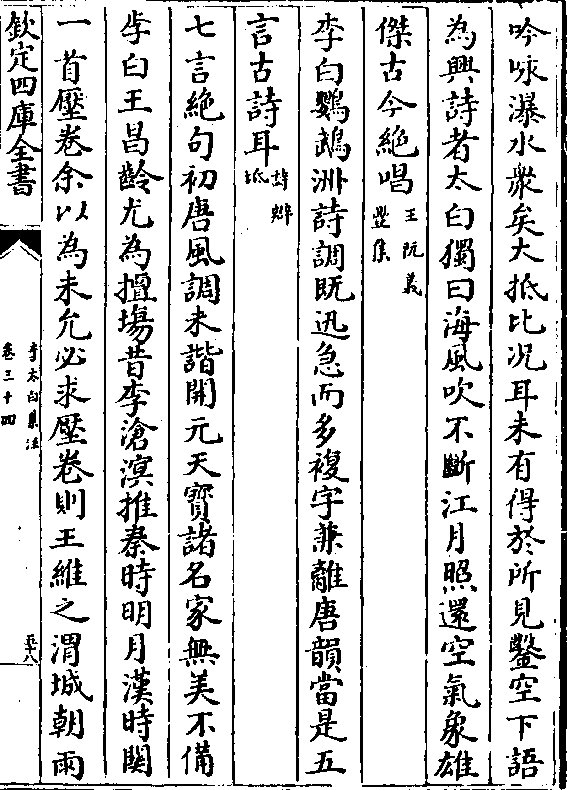 吟咏瀑水衆矣大抵比况耳未有得於所見鑿空下語
為興詩者太白獨曰海風吹不斷江月照還空氣象雄
傑古今絶唱王阮義豐集
李白鸚鵡洲詩調既迅急而多複字兼離唐韻當是五
言古詩耳詩辯坻
七言絶句初唐風調未諧開元天寶諸名家無美不備
李白王昌齡尤為擅塲昔李滄溟推秦時明月漢時關
一首壓卷余以為未允必求壓卷則王維之渭城朝雨
欽定四庫全書
李太白集注
卷三十四
五八